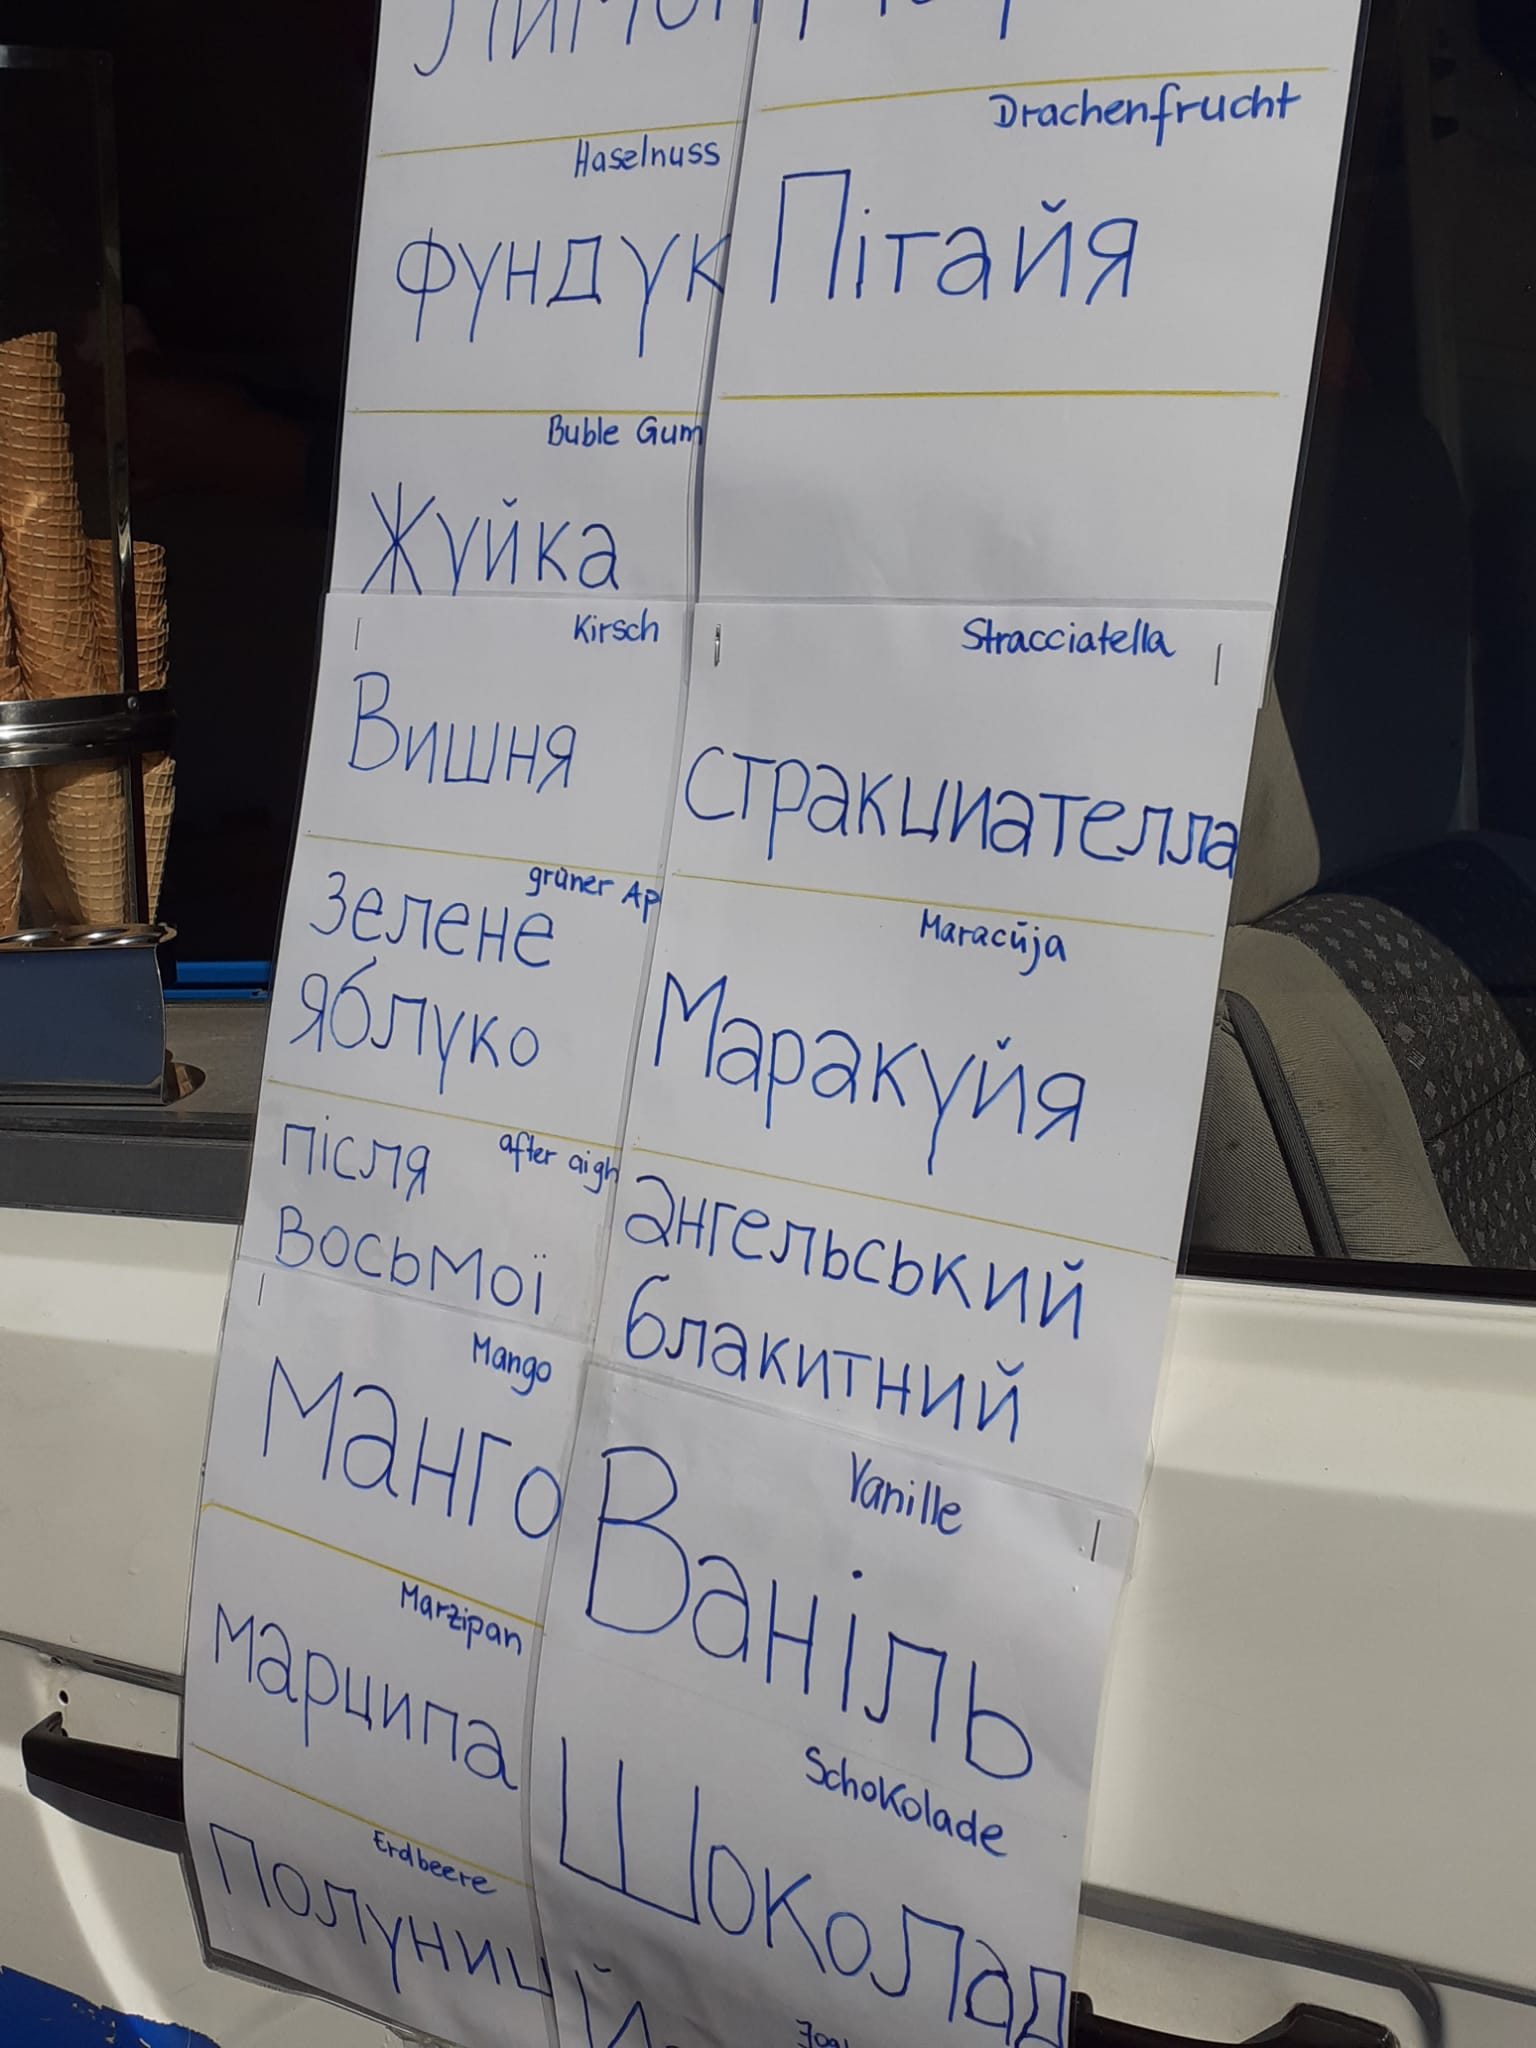 Лимон
Haselnuss
Фундук
Buble Gum
Жуйка
Kirsch
Вишня
grüner Ap
Зелене
яблуко
after aigh
після
восьмої
Mango
Манго
Marzipan
марципа
Erdbeere
Полуниц
Drachenfrucht
Пітайя
Stracciatella
страқциателла
Maracuja
Маракуйя
ангельський
блакитний
Vanille
Ваніль
Schokolade
Шоколад